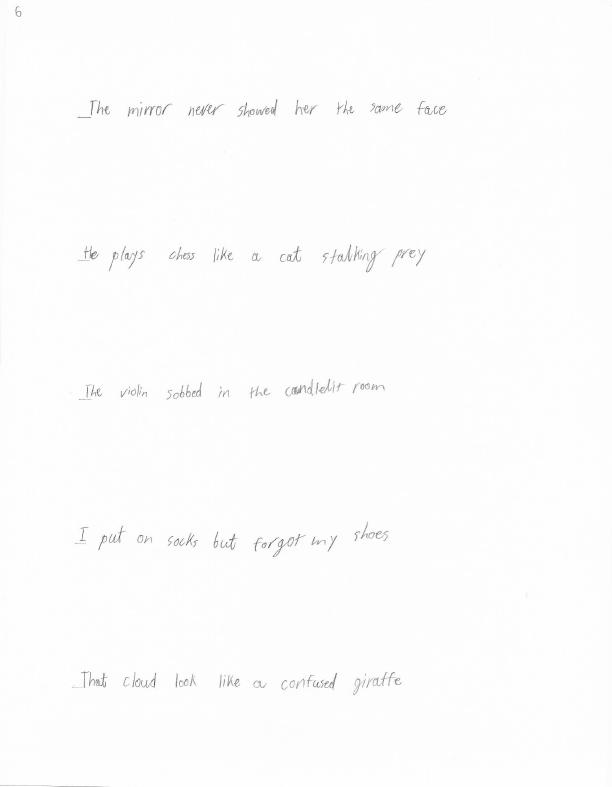 6
The mirror never showed her the same face
He plays chess like a cat stalking prey
The violin sobbed in the candlelit room
I put on socks but forgot my shoes
That cloud look like a confused giraffe